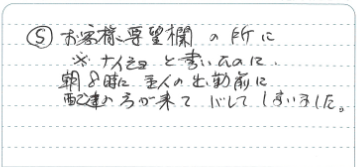 ⑤ お客様要望欄の所に
※ 十人名 と書いたのに、
朝8時に主人の出勤前に
配達の方が来て バレて しまいました。